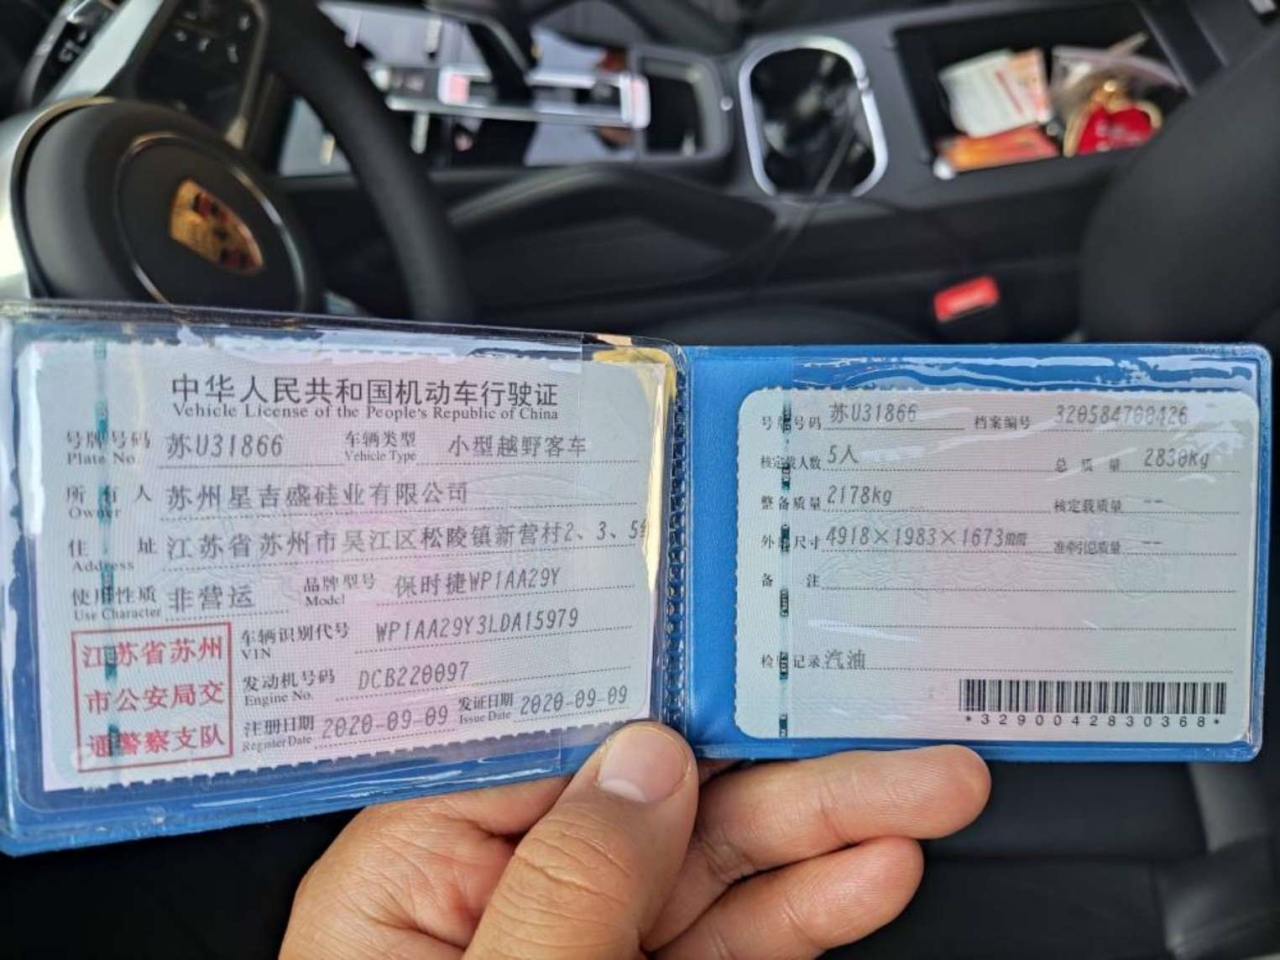 中华人民共和国机动车行驶证
Vehicle License of the People's Republic of China
号牌号码 苏U31866 车辆类型 小型越野客车
Plate No. Vehicle Type
所有人 苏州星吉盛硅业有限公司
Owner
住址 江苏省苏州市吴江区松陵镇新营村2、3、5
Address
使用性质 非营运 品牌型号 保时捷WP1AA29Y
Use Character Model
车辆识别代号 WP1AA29Y3LDA15979
VIN
发动机号码 DCB220097
Engine No.
注册日期 2020-09-09 发证日期 2020-09-09
Register Date Issue Date
江苏省苏州
市公安局交
通警察支队
号牌号码 苏U31866 档案编号 320584700426
核定载人数 5人 总质量 2830kg
整备质量 2178kg 核定载质量 --
外廓尺寸 4918×1983×1673mm 准牵引总质量 --
备注
检验记录 汽油
*3290042830368*